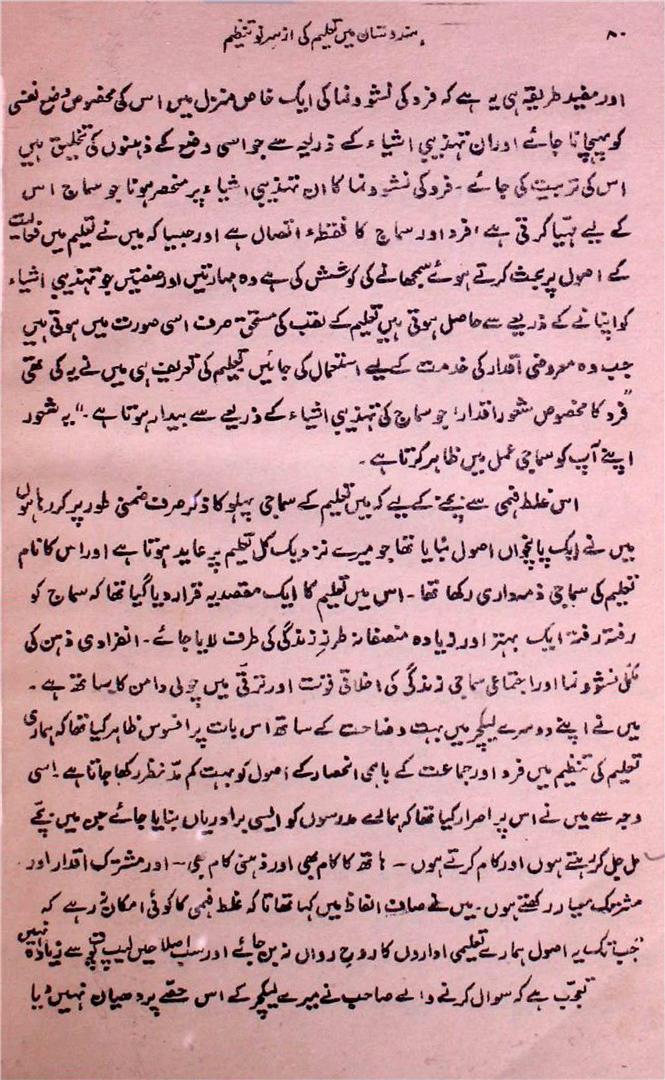 ۸۰ ہندوستان میں تعلیم کی از سرِ نو تنظیم
اور مفید طریقہ ہی یہ ہے کہ فرد کی نشوونما کی ایک خاص منزل میں اس کی مخصوص وضع نفسی
کو پہچانا جائے اور ان تہذیبی اشیاء کے ذریعہ سے جو اسی وضع کے ذہنوں کی تخلیق ہیں
اس کی تربیت کی جائے۔ فرد کی نشوونما کا ان تہذیبی اشیاء پر منحصر ہونا جو سماج اس
کے لیے مہیا کرتی ہے، فرد اور سماج کا نقطۂ اتصال ہے اور جیسا کہ میں نے تعلیم میں فعالیت
کے اصول پر بحث کرتے ہوئے سمجھانے کی کوشش کی ہے وہ مہارتیں اور صفتیں جو تہذیبی اشیاء
کو اپنانے کے ذریعے سے حاصل ہوتی ہیں تعلیم کے لقب کی مستحق صرف اسی صورت میں ہوتی ہیں
جب وہ معروضی اقدار کی خدمت کے لیے استعمال کی جائیں تعلیم کی تعریف ہی میں نے یہ کی تھی
"فرد کا مخصوص شعور اقدار، جو سماج کی تہذیبی اشیاء کے ذریعے سے بیدار ہوتا ہے۔" یہ شعور
اپنے آپ کو سماجی عمل میں ظاہر کرتا ہے۔
اس غلط فہمی سے بچنے کے لیے کہ میں تعلیم کے سماجی پہلو کا ذکر صرف ضمنی طور پر کر رہا ہوں
میں نے ایک پانچواں اصول بنایا تھا جو میرے نزدیک کل تعلیم پر عاید ہوتا ہے اور اس کا نام
تعلیم کی سماجی ذمہ داری رکھا تھا۔ اس میں تعلیم کا ایک مقصد یہ قرار دیا گیا تھا کہ سماج کو
رفتہ رفتہ ایک بہتر اور زیادہ منصفانہ طرزِ زندگی کی طرف لایا جائے۔ انفرادی ذہن کی
مکمل نشوونما اور اجتماعی سماجی زندگی کی اخلاقی قوت اور ترقی میں چولی دامن کا ساتھ ہے۔
میں نے اپنے دوسرے لیکچر میں بہت وضاحت کے ساتھ اس بات پر افسوس ظاہر کیا تھا کہ ہماری
تعلیم کی تنظیم میں فرد اور جماعت کے باہمی انحصار کے اصول کو بہت کم مدِّ نظر رکھا جاتا ہے۔ اسی
وجہ سے میں نے اس پر اصرار کیا تھا کہ ہمارے مدرسوں کو ایسی برادریاں بنایا جائے جن میں بچے
مل جل کر رہتے ہوں اور کام کرتے ہوں ـ ہاتھ کا کام بھی اور ذہنی کام بھی ـ اور مشترک اقدار اور
مشترک معیار رکھتے ہوں۔ میں نے صاف الفاظ میں کہا تھا تاکہ غلط فہمی کا کوئی امکان نہ رہے کہ
"جب تک یہ اصول ہمارے تعلیمی اداروں کا روحِ رواں نہ بن جائے اور سب اصلاحیں لیپ پوت سے زیادہ نہیں
تعجب ہے کہ سوال کرنے والے صاحب نے میرے لیکچر کے اس حصے پر دھیان نہیں دیا